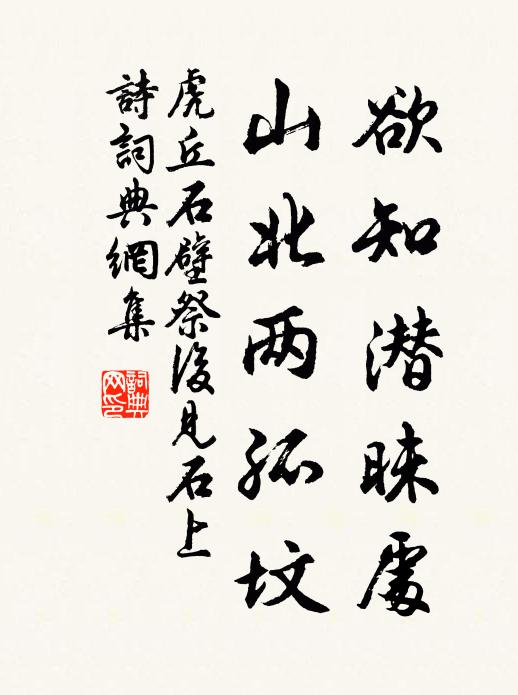 欲知潜昧處
山北两孤坟
虎丘石壁祭後見石上
詩詞典網集
詞典网印